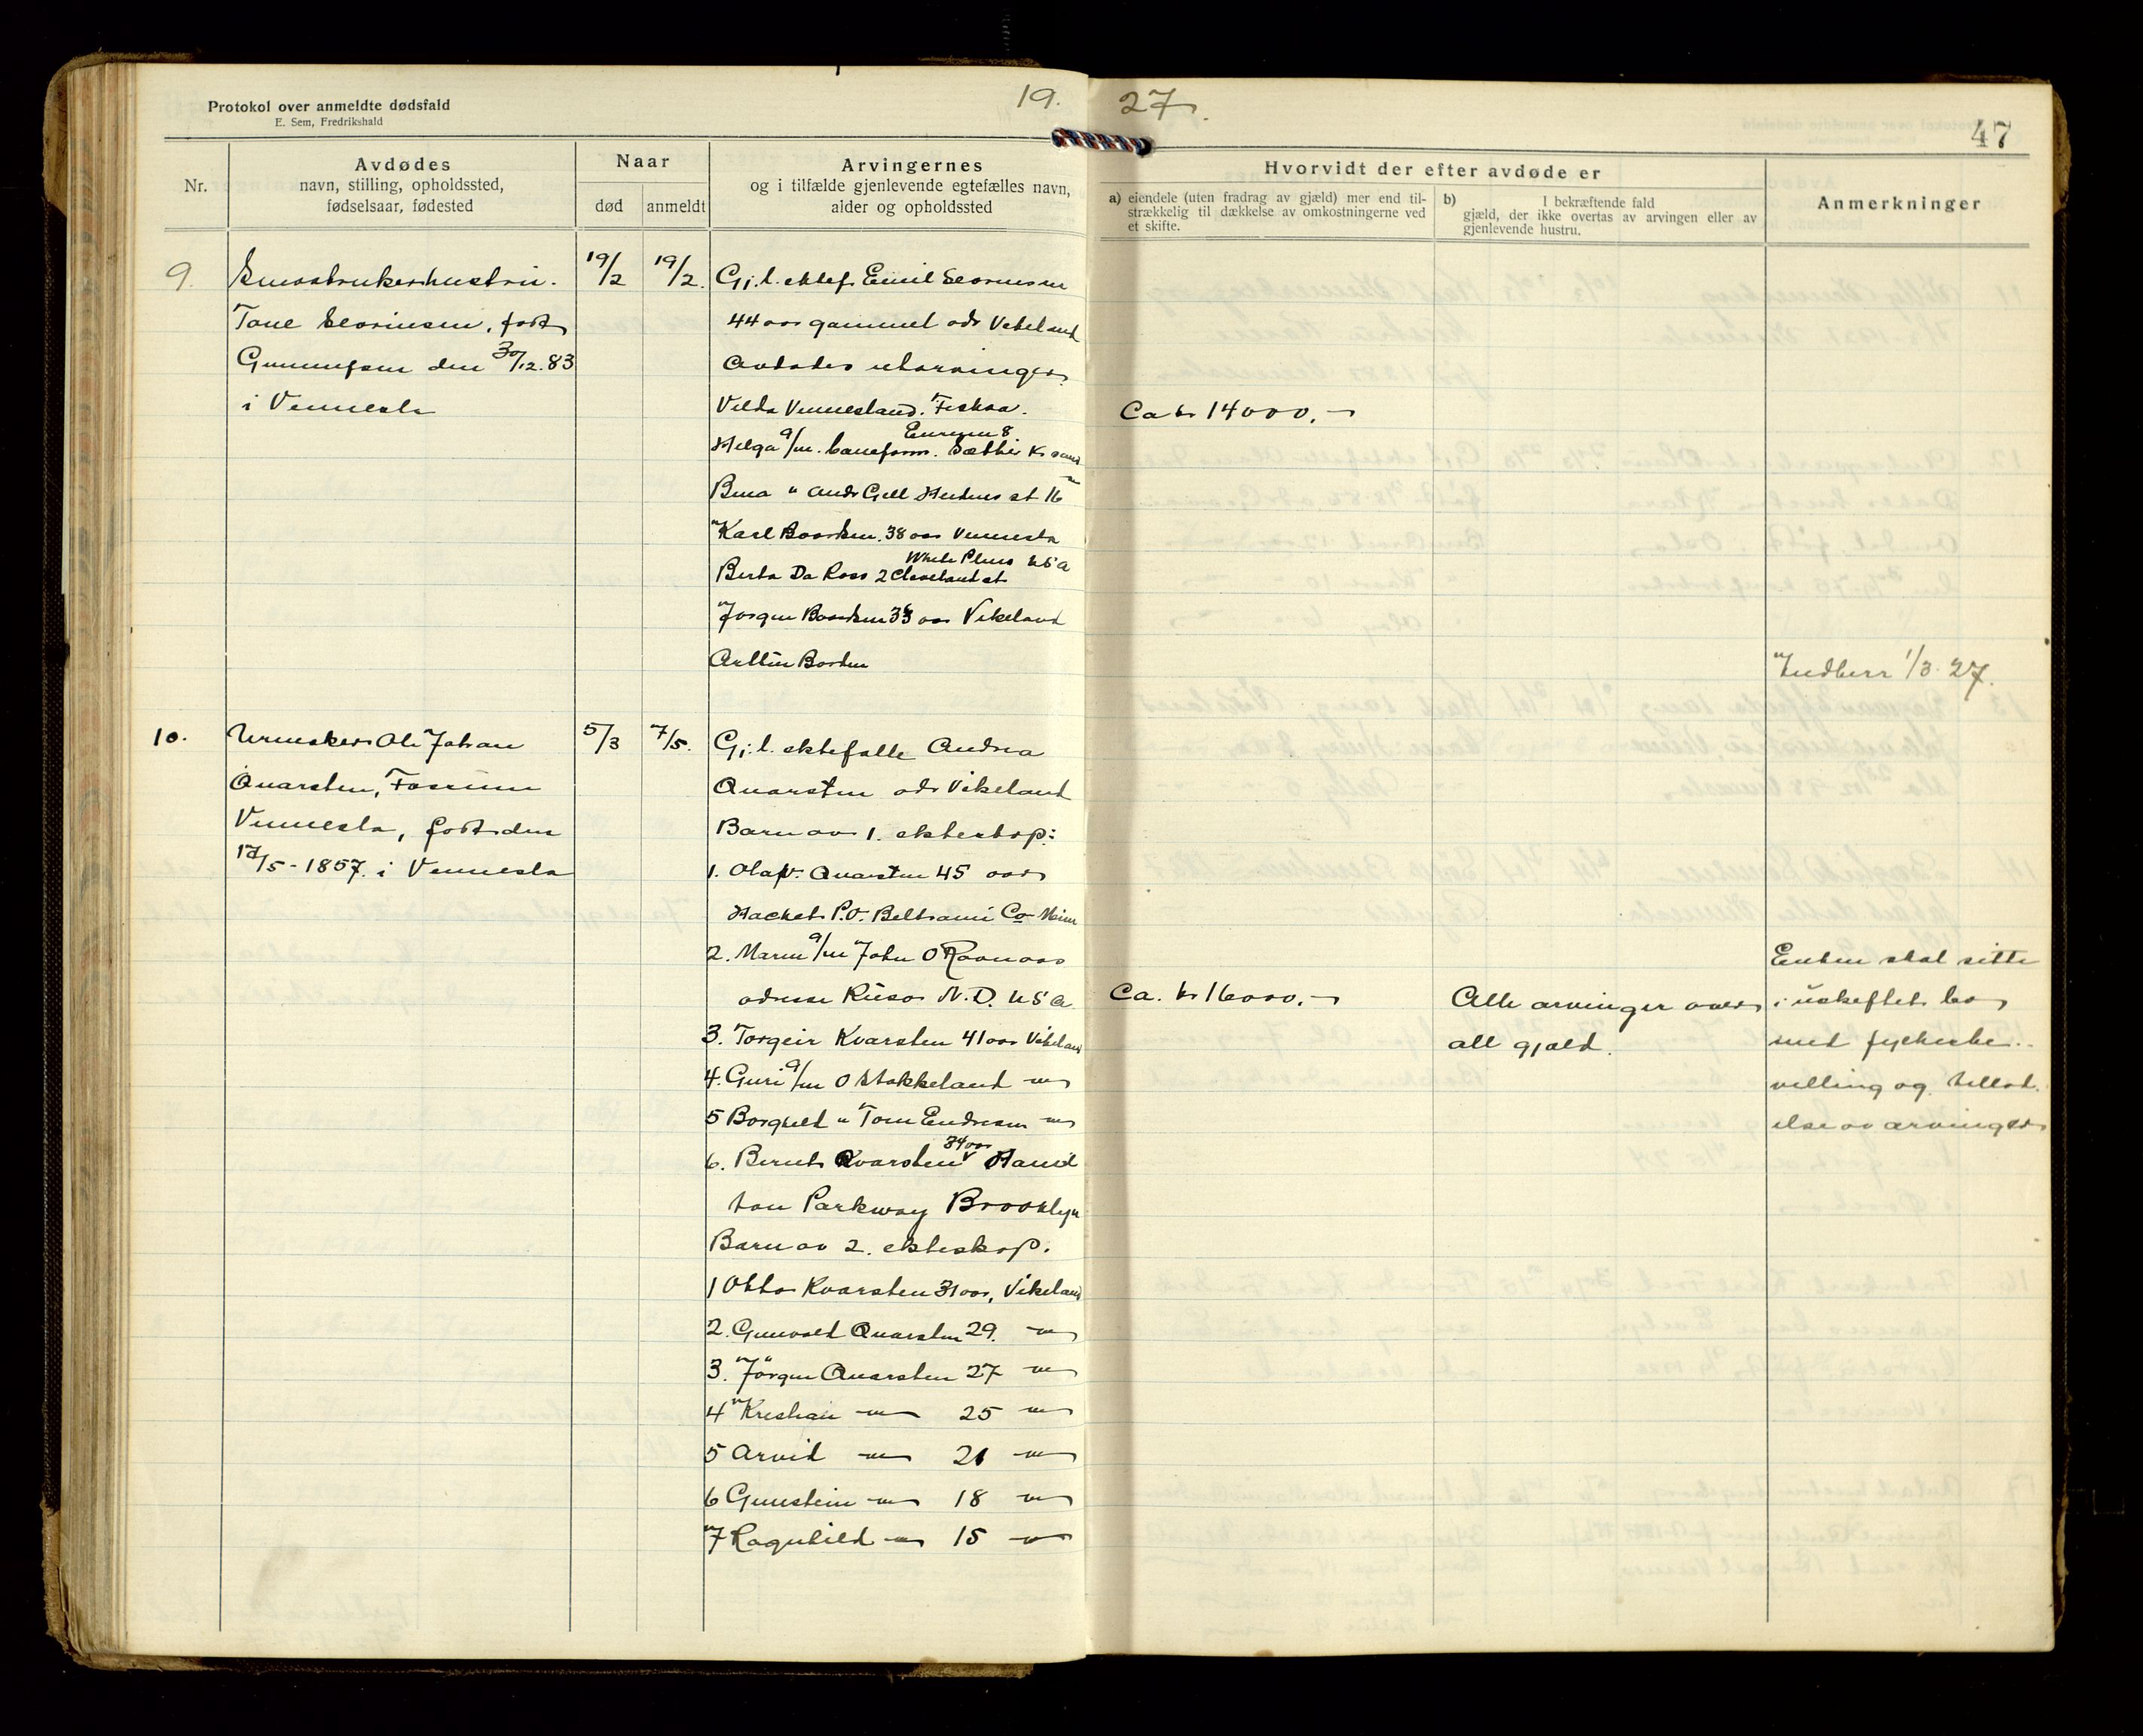 Protokol over anmeldte dødsfald
E. Sem, Fredrikshald
19. 27.
47
Nr.
Avdødes
navn, stilling, opholdssted,
fødselsaar, fødested
Naar
død
anmeldt
Arvingernes
og i tilfælde gjenlevende egtefælles navn,
alder og opholdssted
Hvorvidt der efter avdøde er
a) eiendele (uten fradrag av gjæld) mer end til-
strækkelig til dækkelse av omkostningerne ved
et skifte.
b) I bekræftende fald
gjæld, der ikke overtas av arvingen eller av
gjenlevende hustru.
Anmerkninger
9.
Smaabrukerhustru.
Tone, født
Gunnufsen den 30/12.83
i Vennesla
19/2
19/2.
Gj.l. ektef. Emil
44 aar gammel adr Vikeland
Avdødes utarvinger
Vennesland. Fiskaa.
Helga g/m. baneform. Sæther K sand
" Andr
Karl Baardsen. 38 aar Vennesla
White Plins USA
Berta Da Ross 2 Cleveland st
Jørgen Baardsen aar Vikeland
Ca kr 14000.-
1/3. 27.
10.
Urmaker Ole Johan
Quarsten,
Vennesla, født den
/5-1857. i Vennesla
5/3
7/5.
Gj.l. ektefælle Andrea
Quarsten adr Vikeland
Barn av 1. ekteskap:
1. Olaf Quarsten 45 aar
Hacket P.O. Beltrami Co Minn
2. Maren g/m John O Ravnaas
adresse Ruso N.D. USA
3. Torgeir Kvarsten 41 aar Vikeland
4. Guri g/m O Stokkeland —"—
5 Borghild " Tom Endresen —"—
34 aar
6. Bernt Kvarsten Hamil
ton Parkway Brooklyn
Barn av 2. ekteskap.
1 Otto Kvarsten 31 aar, Vikeland
2. Gunvald Quarsten 29. —"—
3. Jörgen Quarsten 27 —"—
4 Kristian —"— 25 —"—
5 Arvid —"— 21 —"—
6 Gunstein —"— 18 —"—
7 Ragnhild —"— 15 —"—
Ca. kr 16000.-
Alle arvinger over
all gjæld.
Enken skal sitte
i uskiftet bo
med fylkesbe-
villing og tillat-
else av arvinger